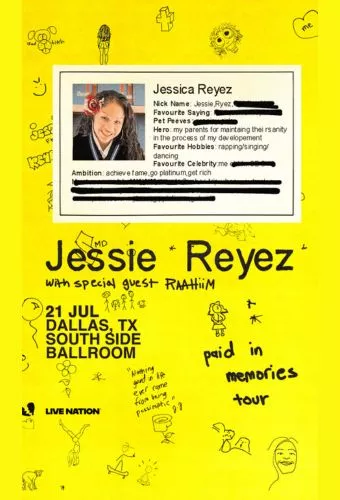 me
Jessica Reyez
Nick Name: Jessie,Ryez,
Favourite Saying
Pet Peeves:
Hero: my parents for maintaing thei rsanity
in the process of my developement
Favourite Hobbies: rapping/singing/
dancing
Favourite Celebrity:me
Ambition: achieve fame,go platinum,get rich
MD
Jessie Reyez
with special guest RAAHiiM
21 JUL
DALLAS, TX
SOUTH SIDE
BALLROOM
paid in
memories
tour
"Nothing
good in life
ever came
from being
pessimistic"
LIVE NATION